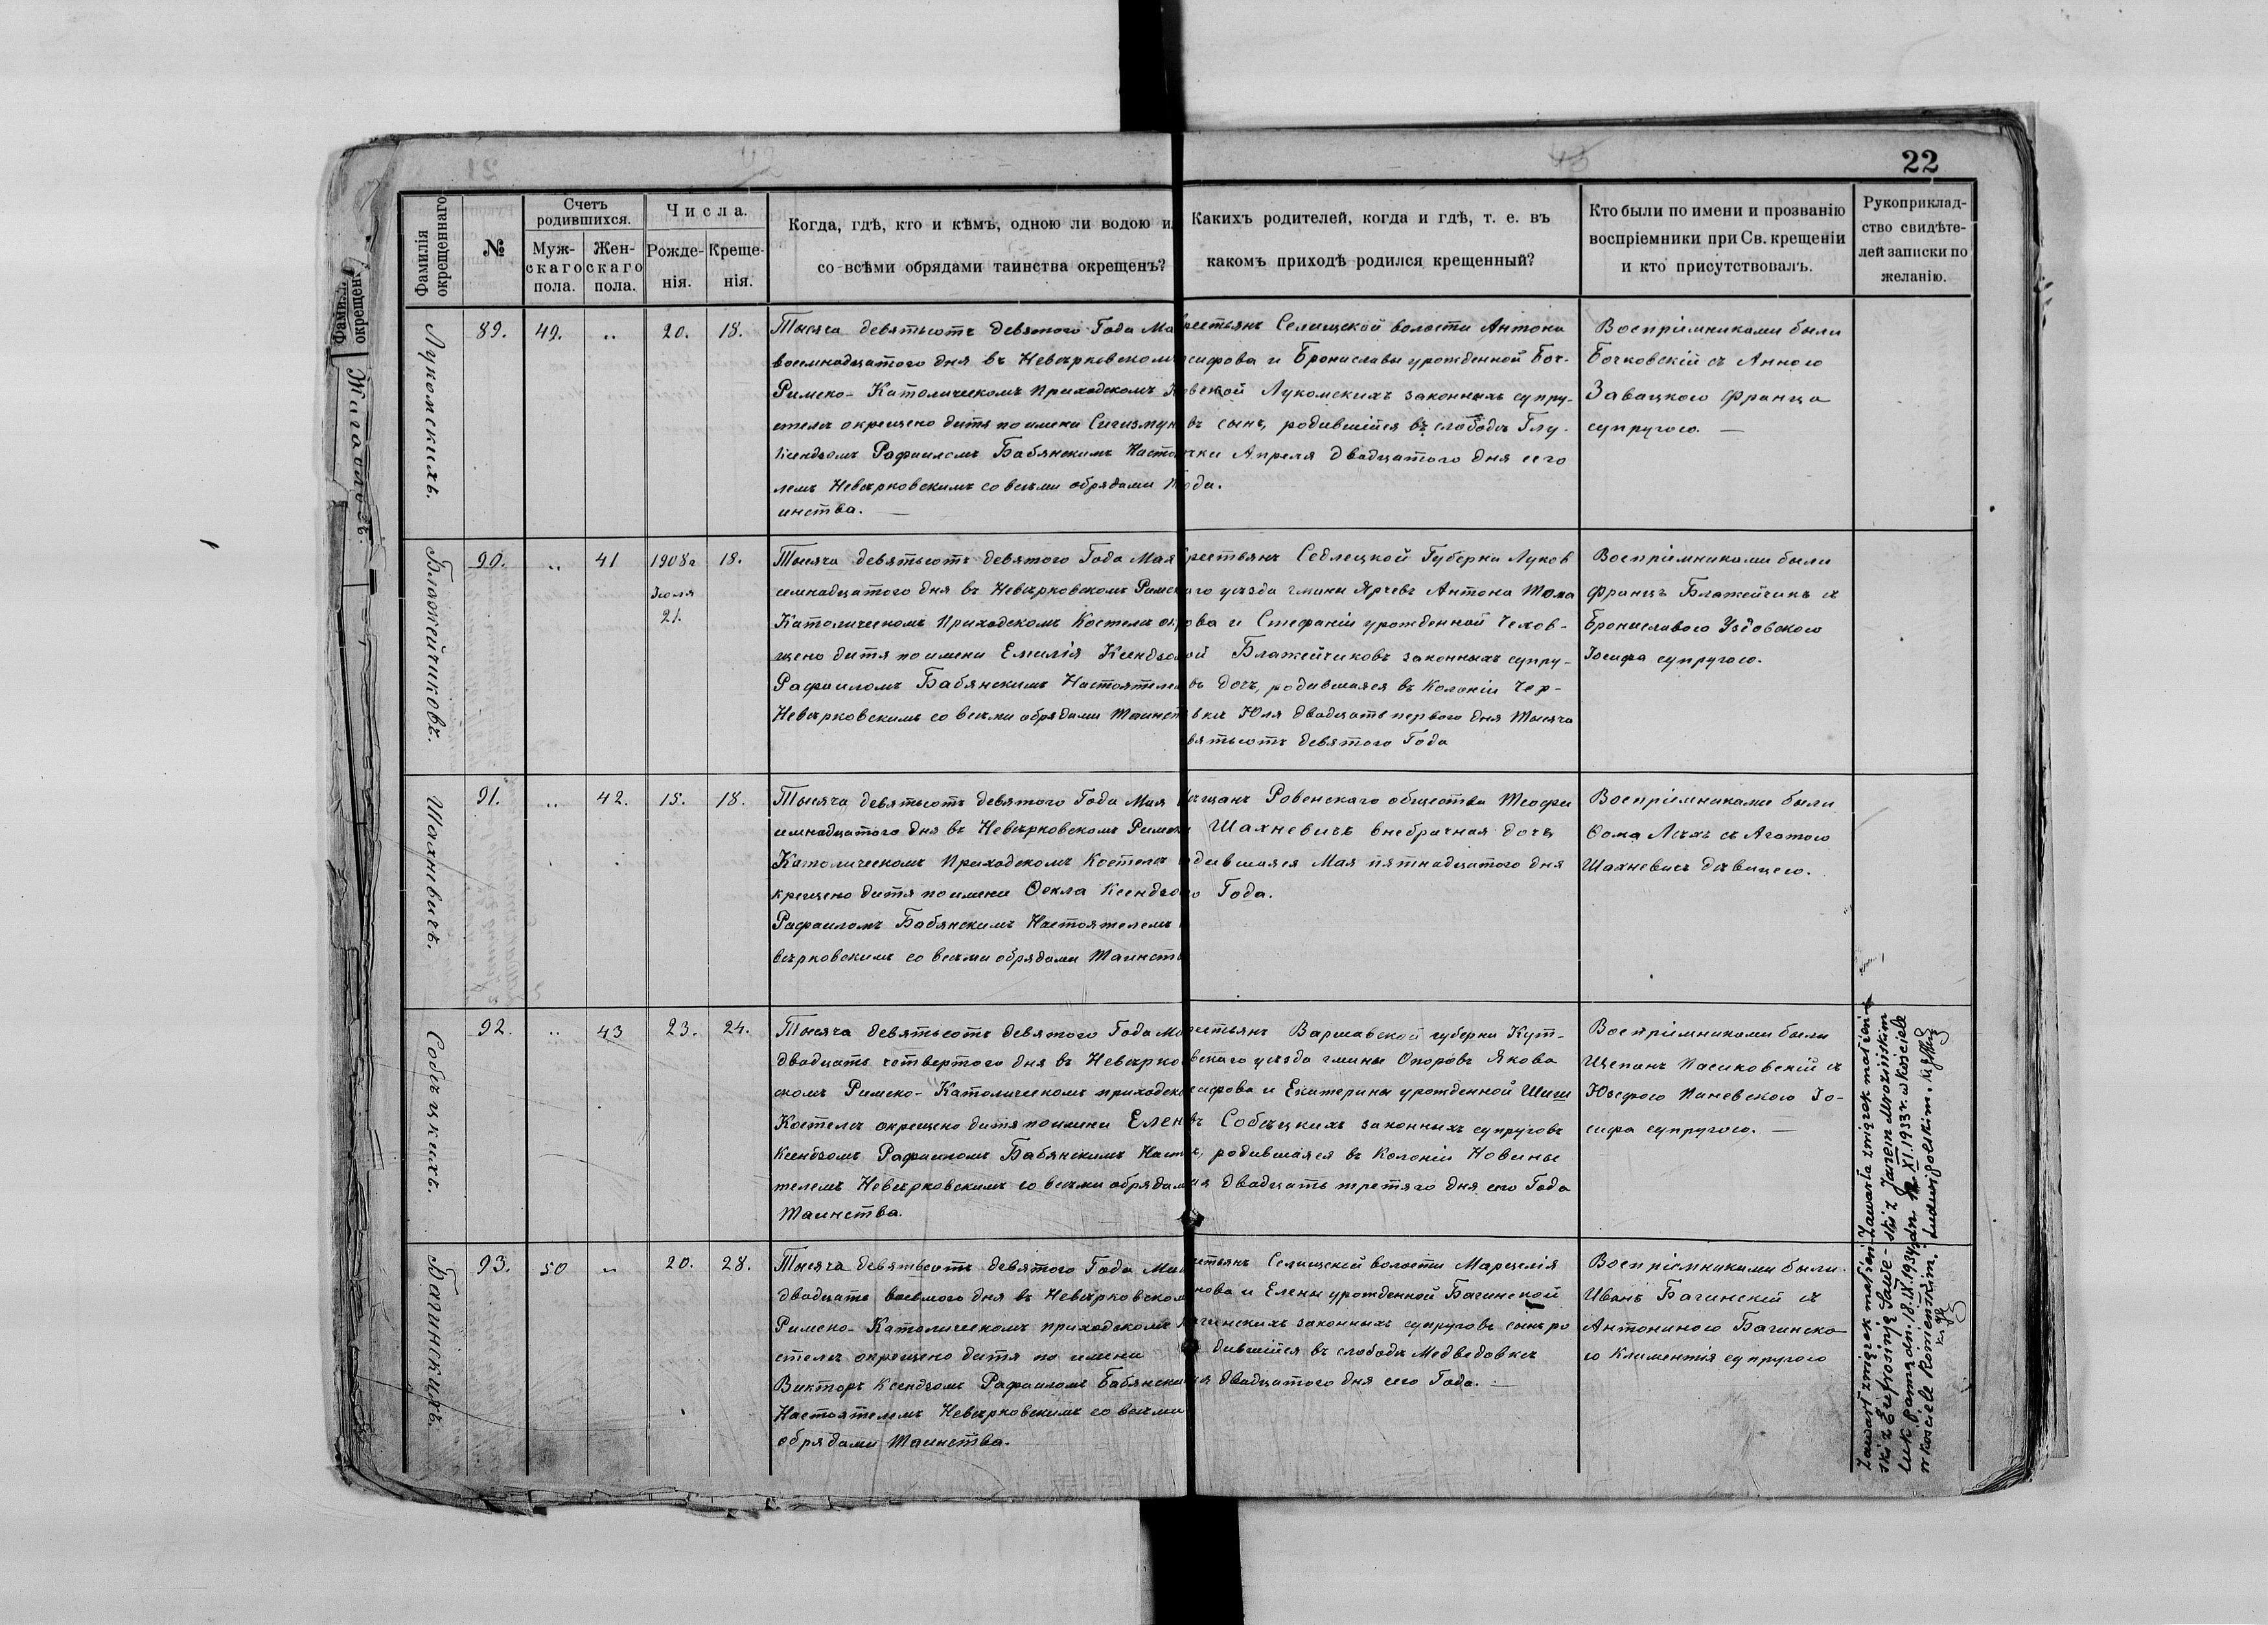 22
Фамилія окрещеннаго
№
Счетъ родившихся.
Муж-
скаго
пола.
Жен-
скаго
пола.
Числа.
Рожде-
нія.
Креще-
нія.
Когда, гдѣ, кто и кѣмъ, одною ли водою и
со всѣми обрядами таинства окрещенъ?
Какихъ родителей, когда и гдѣ, т. е. въ
какомъ приходѣ родился крещенный?
Кто были по имени и прозванію
воспріемники при Св. крещеніи
и кто присутствовалъ.
Рукоприклад-
ство свидѣте-
лей записки по
желанію.
Лукомскихъ.
89. 49. „ 20. 18.
Тысяча девятьсотъ девятого Года Ма
восемнадцатого дня въ Невѣрковскомъ
Римско-Католическомъ Приходскомъ К
стелѣ окрещено дитя по имени Сигизмун
Ксендзомъ Рафаиломъ Бабянскимъ Насто
лемъ Невѣрковскимъ со всѣми обрядами Т
инства. —
рестьянъ Селищской волости Антона
сифова и Брониславы урожденной Боч-
овской Лукомскихъ законныхъ супру-
въ сынъ, родившійся въ слободѣ Глу-
чки Апреля двадцатого дня сего
ода.
Воспріемниками были
Бочковскій съ Анною
Завацкого Франца
супругою. —
Блажейчиковъ.
90. „ 41 1908г. 18.
Іюля
21.
Тысяча девятьсотъ девятого Года Мая
семнадцатого дня въ Невѣрковскомъ Римс
Католическомъ Приходскомъ Костелѣ ок
щено дитя по имени Емилія Ксендзо
Рафаиломъ Бабянскимъ Настоятеле
Невѣрковскимъ со всѣми обрядами Таинст
рестьянъ Седлецкой Губерни Луков
аго уѣзда гмины Ярчевъ Антона Тома
ова и Стефаніи урожденной Чехов-
ой Блажейчиковъ законныхъ супру-
въ дочь, родившаяся въ Колоніи Чер-
вкѣ Юля двадцать первого дня Тысяча
вятьсотъ девятого Года
Воспріемниками были
Францъ Блажейчикъ съ
Брониславою Уздовского
Іосифа супругою.
Шахневичъ.
91. „ 42. 15. 18.
Тысяча девятьсотъ девятого Года Мая
емнадцатого дня въ Невѣрковскомъ Римск
Католическомъ Приходскомъ Костелѣ о
крещено дитя по имени Ѳекла Ксендзо
Рафаиломъ Бабянскимъ Настоятелемъ
вѣрковскимъ со всѣми обрядами Таинств
ѣщанъ Ровенскаго общества Теофи
Шахневичъ внебрачная дочь
дившаяся Мая пятнадцатого дня
о Года.
Воспріемниками были
Ѳома Лехъ съ Агатою
Шахневичъ дѣвицею.
Собѣцкихъ.
92. „ 43 23. 24.
Тысяча девятьсотъ девятого Года Ма
двадцать четвертого дня въ Невѣрко
скомъ Римско-Католическомъ приходск
Костелѣ окрещено дитя по имени Елен
Ксендзомъ Рафаиломъ Бабянскимъ Наст
телемъ Невѣрковскимъ со всѣми обрядам
Таинства.
рестьянъ Варшавской губерни Кут-
вскаго уѣзда гмины Опоровъ Якова
сифова и Екатерины урожденной Шиш
въ Собѣцкихъ законныхъ супруговъ
родившаяся въ Колоніи Новины
ая двадцать третяго дня сего Года
Воспріемниками были
Щепанъ Пасиковскій съ
Юзефою Паневского Іо-
сифа супругою. —
Zawarła związek małżeń-
ski z Janem Mrozińskim
dn. XI.1933 r. w kościele
Ludwipolskim.
Багинскихъ.
93. 50 „ 20. 28.
Тысяча девятьсотъ девятого Года Ма
двадцать восьмого дня въ Невѣрковском
Римско-Католическомъ приходскомъ
стелѣ окрещено дитя по имени
Викторъ Ксендзомъ Рафаиломъ Бабянски
Настоятелемъ Невѣрковскимъ со всѣми
обрядами Таинства.
стьянъ Селищской волости Марцелія
нова и Елены урожденной Багинской
гинскихъ законныхъ супруговъ сынъ ро
дившійся въ слободѣ Медведовкѣ
ая двадцатого дня сего Года. —
Воспріемниками были
Иванъ Багинскій съ
Антониною Багинско-
го Климентія супругою
Zawarł związek małżeń-
ski z Eufrozynją Sawe-
luk panną dn. 18.IX.1934 r.
w kościele Korzenskim.